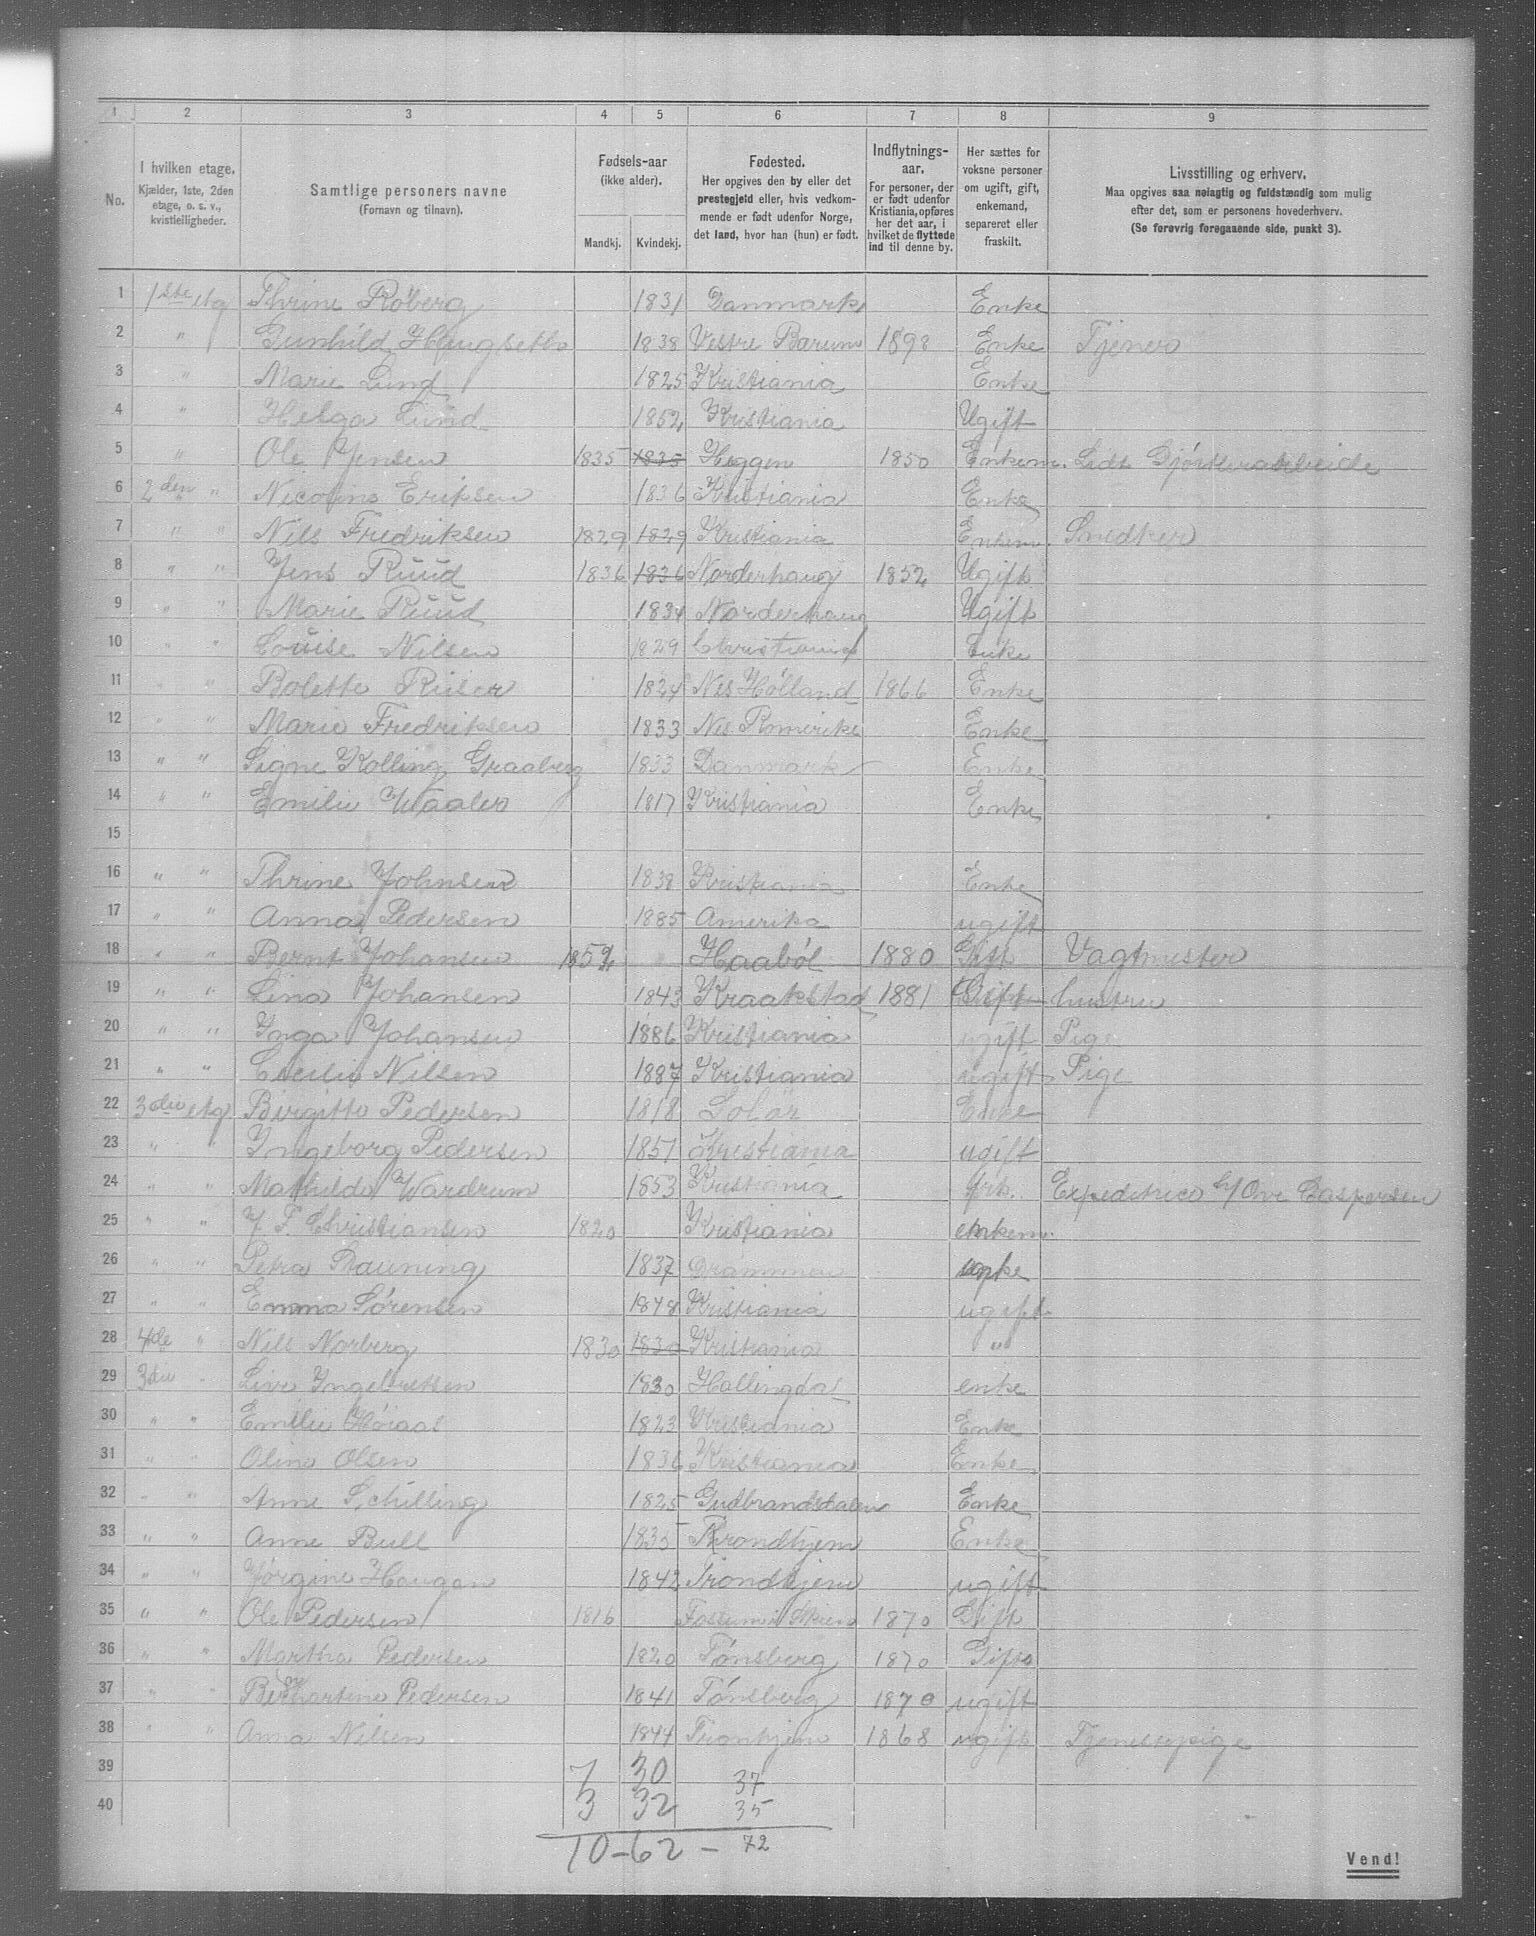 1 2 3 4 5 6 7 8 9
No.
I hvilken etage.
Kjælder, 1ste, 2den
etage, o. s. v.,
kvistleiligheder.
Samtlige personers navne
(Fornavn og tilnavn).
Fødsels-aar
(ikke alder).
Mandkj. Kvindekj.
Fødested.
Her opgives den by eller det
prestegjeld eller, hvis vedkom-
mende er født udenfor Norge,
det land, hvor han (hun) er født.
Indflytnings-
aar.
For personer, der
er født udenfor
Kristiania, opføres
her det aar, i
hvilket de flyttede
ind til denne by.
Her sættes for
voksne personer
om ugift, gift,
enkemand,
separeret eller
fraskilt.
Livsstilling og erhverv.
Maa opgives saa nøiagtig og fuldstændig som mulig
efter det, som er personens hovederhverv.
(Se forøvrig foregaaende side, punkt 3).
1 1ste etg Thrine Röberg 1831 Danmark Enke
2 " Gunhild Haugseth 1838 Vestre Barum 1898 Enke Tjener
3 " Marie Lund 1825 Kristiania Enke
4 " Helga Lund 1852 Kristiania Ugift
5 " Ole Jensen 1835 1835 Heggen 1850 Enkem. Lidt
6 2den " Nicoline Eriksen 1836 Kristiania Enke
7 " " Nils Fredriksen 1829 1829 Kristiania Enkem. Snedker
8 " " Jens Ruud 1836 1836 Norderhaug 1852 Ugift
9 " " Marie Ruud 1834 Norderhaug Ugift
10 " " Louise Nilsen 1829 Christiania Enke
11 " " Bolette Riiser 1824 Nes Hölland 1866 Enke
12 " " Marie Fredriksen 1833 Nes Romerike Enke
13 " " Signe Kolling Graaberg 1833 Danmark Enke
14 " " Emilie Waaler 1817 Kristiania Enke
15
16 " " Thrine Johnsen 1838 Kristiania Enke
17 " " Anna Pedersen 1885 Amerika ugift
18 " " Bernt Johansen 1852 Haaböl 1880 Gift Vagtmester
19 " " Lina Johansen 1843 Kraakstad 1881 Gift hustru
20 " " Inga Johansen 1886 Kristiania ugift Pige
21 " " Cecilie Nilsen 1887 Kristiania ugift Pige
22 3die etg Birgitte Pedersen 1818 Solör Enke
23 " " Ingeborg Pedersen 1851 Kristiania ugift
24 " " Mathilde Wardrum 1853 Kristiania frk. Expeditrice h/Ove Caspersen
25 " " J F Christiansen 1820 Kristiania enkem.
26 " " Petra Bauning 1837 Drammen enke
27 " " Emma Sörensen 1848 Kristiania ugift
28 4de " Nils Norberg 1830 1830 Kristiania "
29 3die " Live Ingebretsen 1830 Hallingdal enke
30 " " Emilie 1823 Kristiania Enke
31 " " Oline Olsen 1836 Kristiania Enke
32 " " Anne Schilling 1825 Gudbrandsdalen Enke
33 " " Anne Bull 1835 Trondhjem Enke
34 " " Jörgine Haugan 1842 Trondhjem ugift
35 " " Ole Pedersen 1816 Skien 1870 Gift
36 " " Martha Pedersen 1820 Tönsberg 1870 Gift
37 " " Pedersen 1841 Tönsberg 1870 ugift
38 " " Anna Nilsen 1844 Tronhjem 1868 ugift Tjenestepige
39 7 30 37
40 3 32 35
10 - 62 - 72
Vend!